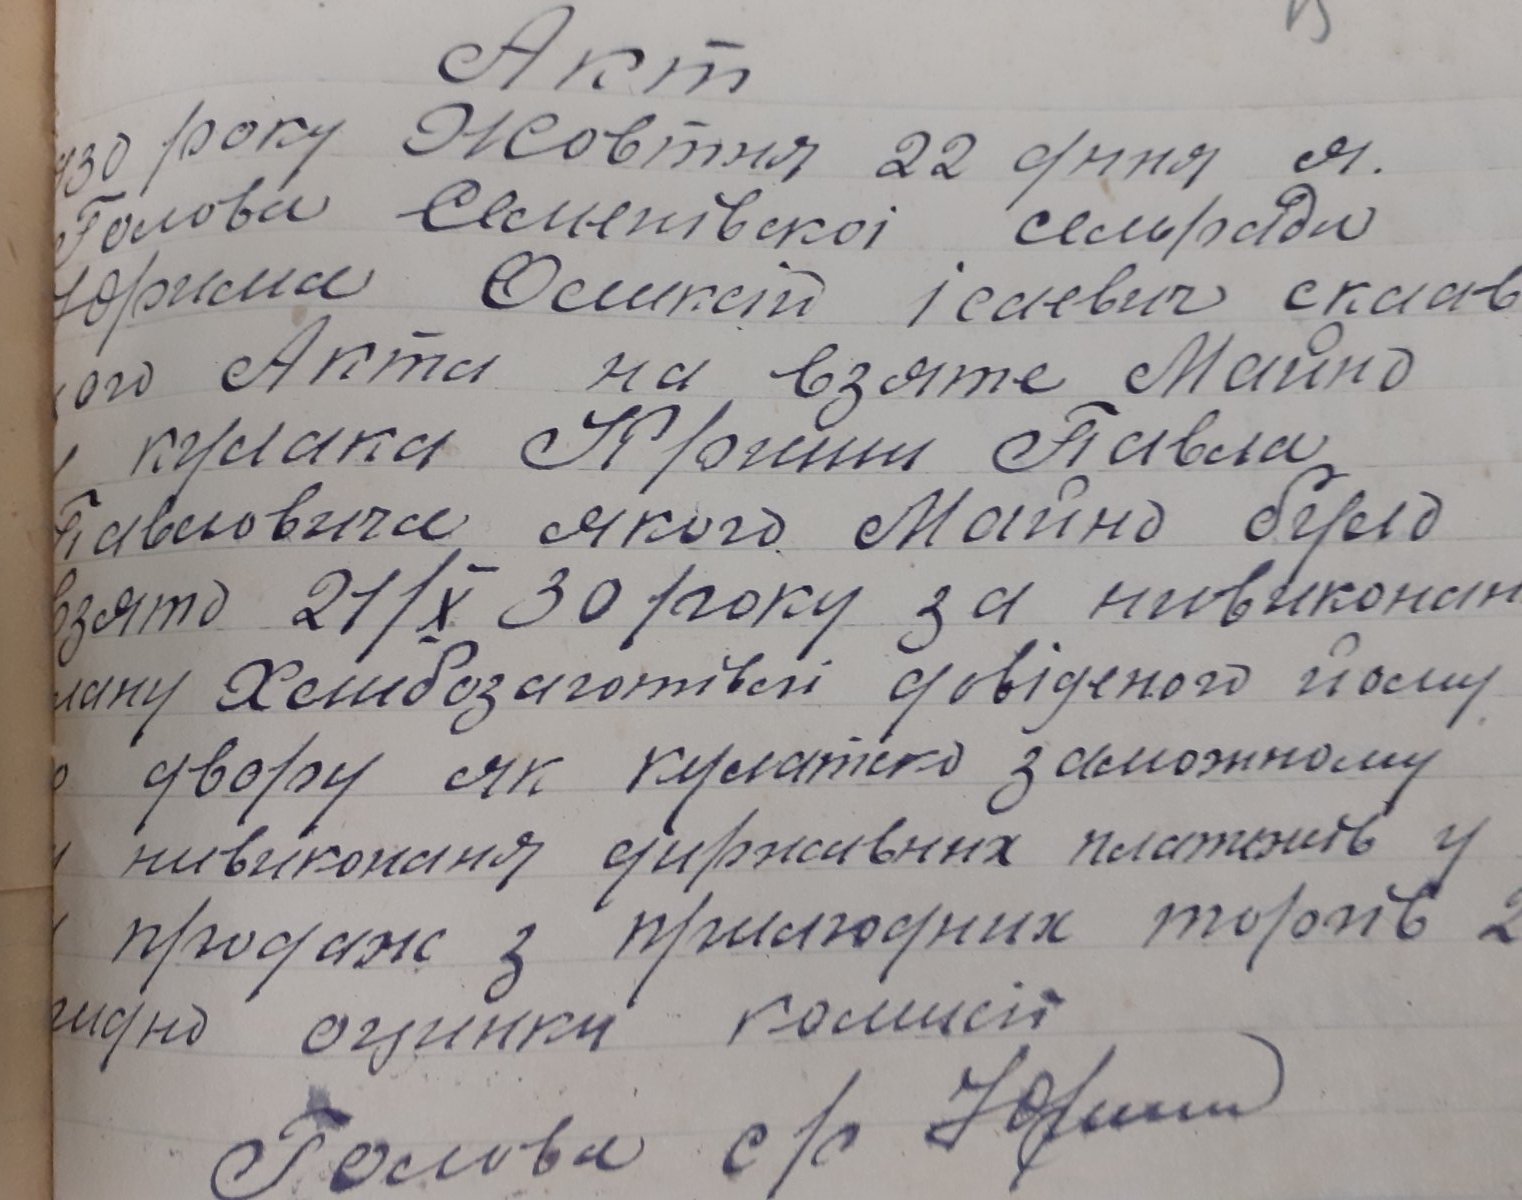 Акт
930 року Жовтня 22 дння я.
Голова Семенівскоі сельради
Юрима Оликсій Ісаевич склав
кого Акта на взяте Майно
у кулака Крини Павла
Павловича якого Майно було
взято 21/X 30 року за нивиконан
лану Хлибозаготівлі довіденого йому
о двору як кулатско заможному
и нивиконаня диржавних платежів у
продаж з прилюдних торгів 2
гидно оцинки комисіі
Голова с/р